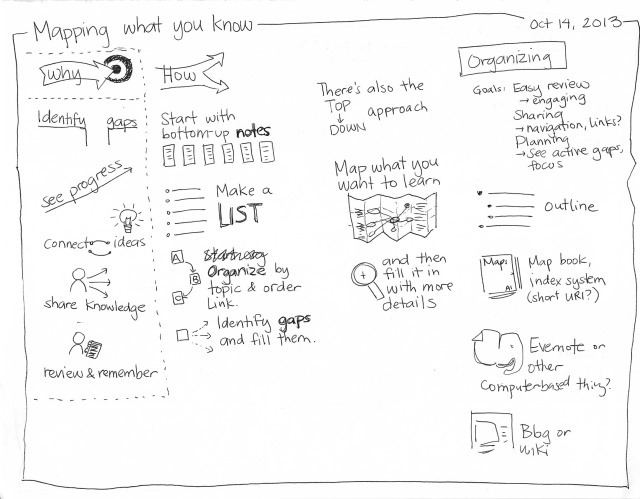 Mapping what you know
Oct 14, 2013
Why
Identify gaps
see progress
Connect ideas
share knowledge
review & remember
How
Start with
bottom-up notes
Make a
LIST
A
B
C
Organize by
topic & order
Link.
Identify gaps
and fill them.
There's also the
TOP
DOWN
approach
Map what you
want to learn
and then
fill it in
with more
details
Organizing
Goals: Easy review
→ engaging
Sharing
→ navigation, links?
Planning
→ See active gaps,
focus
Outline
Map:
A1
Map book,
index system
(short URI?)
Evernote or
other
computerbased thing?
Blog or
wiki